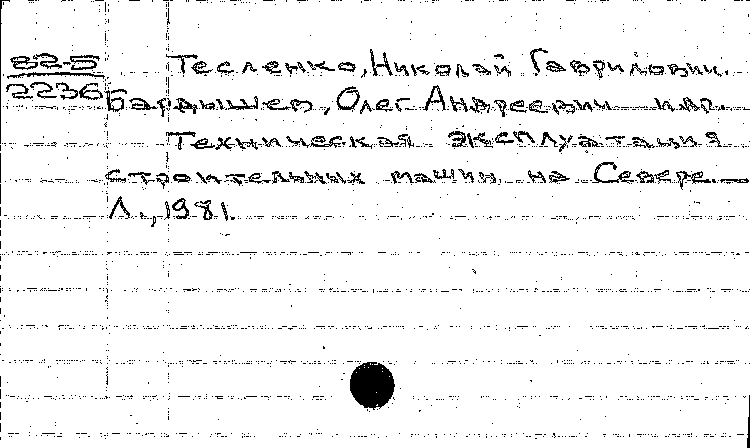 82-5
2236
Тесленко, Николай Гаврилович.
Бардышев, Олег Андреевич и др.
Техническая эксплуатация
строительных машин на Севере. —
Л., 1981.